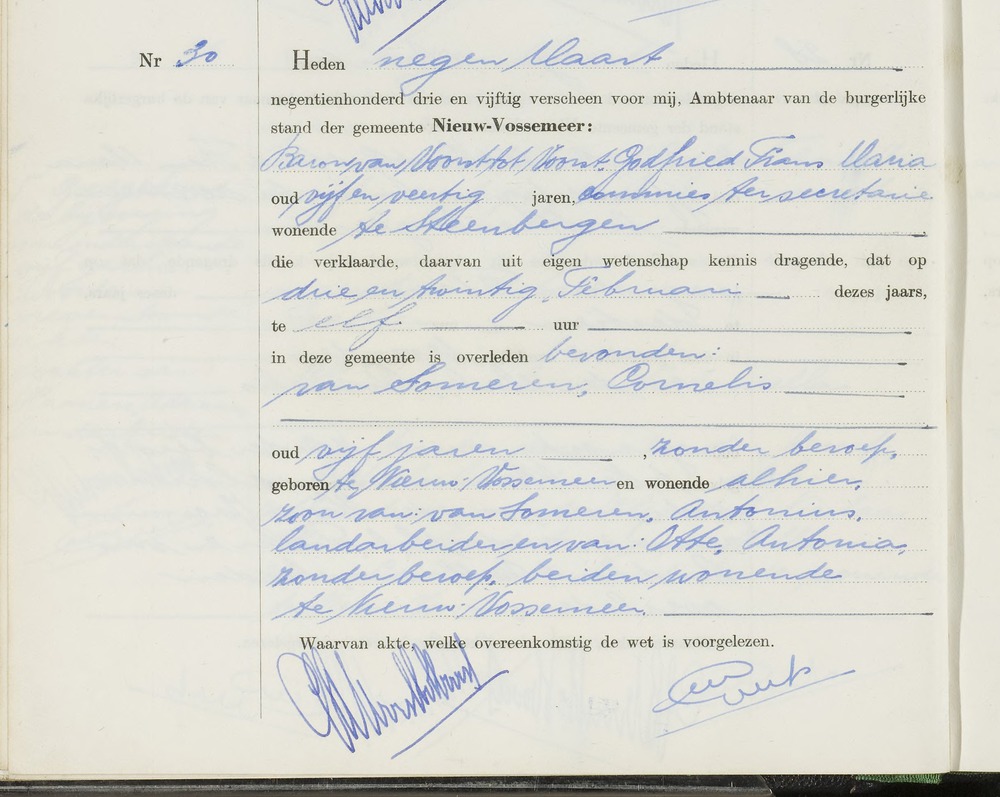 Nr 30
Heden negen Maart
negentienhonderd drie en vijftig verscheen voor mij, Ambtenaar van de burgerlijke
stand der gemeente Nieuw-Vossemeer:
Baron van Voorst tot Voorst, Godfried Frans Maria
oud vijf en veertig jaren, commies ter secretarie
wonende te Steenbergen
die verklaarde, daarvan uit eigen wetenschap kennis dragende, dat op
drie en twintig Februari dezes jaars,
te elf uur
in deze gemeente is overleden bevonden:
van Someren, Cornelis
oud vijf jaren, zonder beroep,
geboren te Nieuw-Vossemeer en wonende alhier,
zoon van: van Someren, Antonius,
landarbeider en van: Otte, Antonia,
zonder beroep, beiden wonende
te Nieuw-Vossemeer.
Waarvan akte, welke overeenkomstig de wet is voorgelezen.